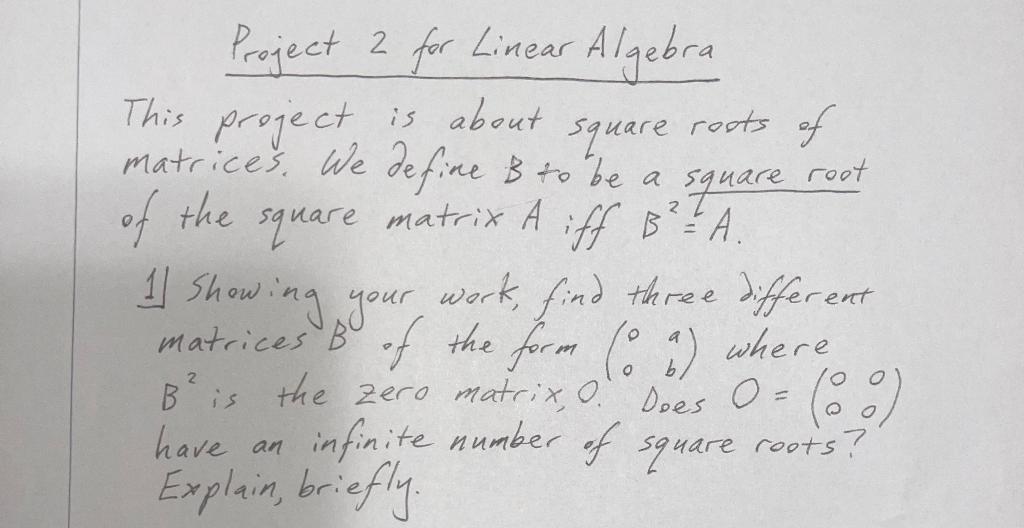 Project 2 for Linear Algebra
This project is about square roots of
matrices. We define B to be a square root
of the square matrix A iff B² = A.
1] Showing your work, find three different
matrices B of the form (0 a; 0 b) where
B² is the zero matrix, O. Does O = (0 0; 0 0)
have an infinite number of square roots?
Explain, briefly.